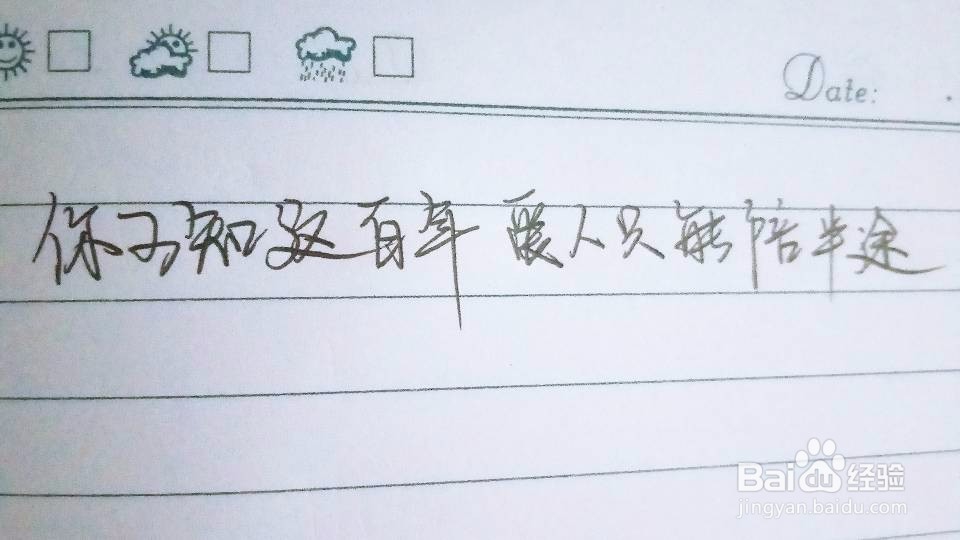 Date:
你不知这百年 爱人只能陪半途
Baidu经验
jingyan.baidu.com